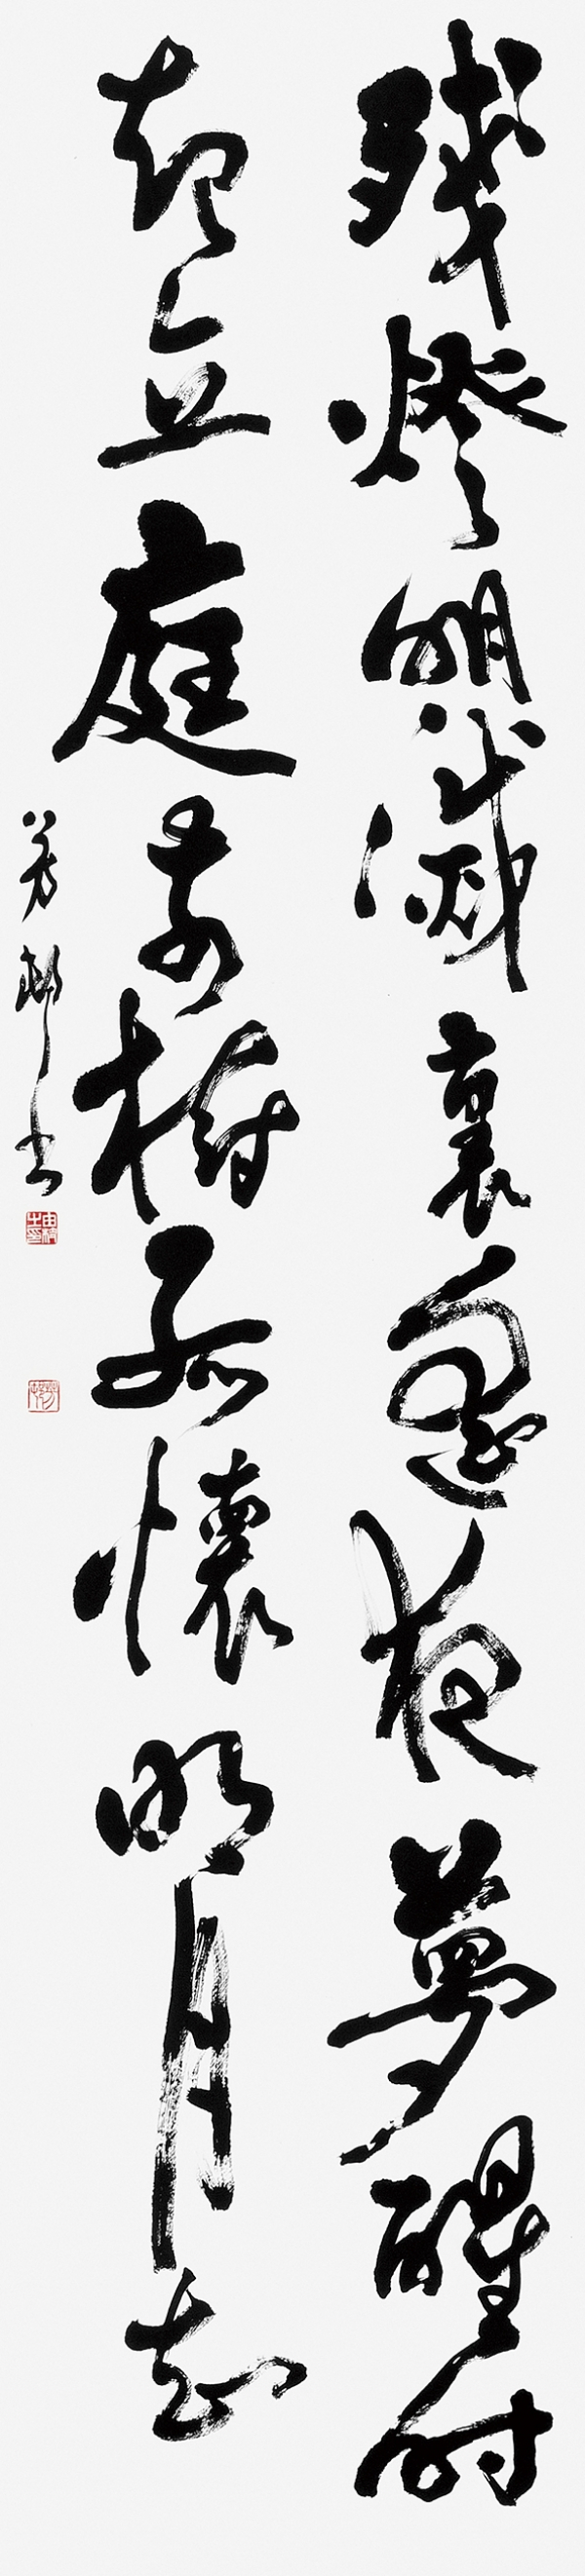 殘燈明滅裏遙夜夢醒時
起立庭前樹孤懷明月知
芳邨書